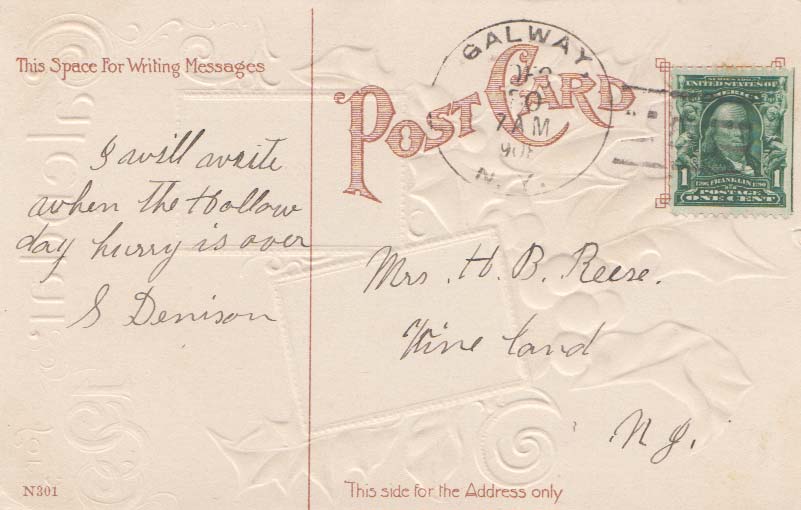 This Space For Writing Messages
POST CARD
GALWAY,
7 AM
N. Y.
SERIES 1902
UNITED STATES OF
AMERICA
1 FRANKLIN 1
POSTAGE
ONE CENT
I will write
when the Hollow
day hurry is over
S Denison
Mrs. H. B. Reese.
Vine land
N J.
N301
This side for the Address only